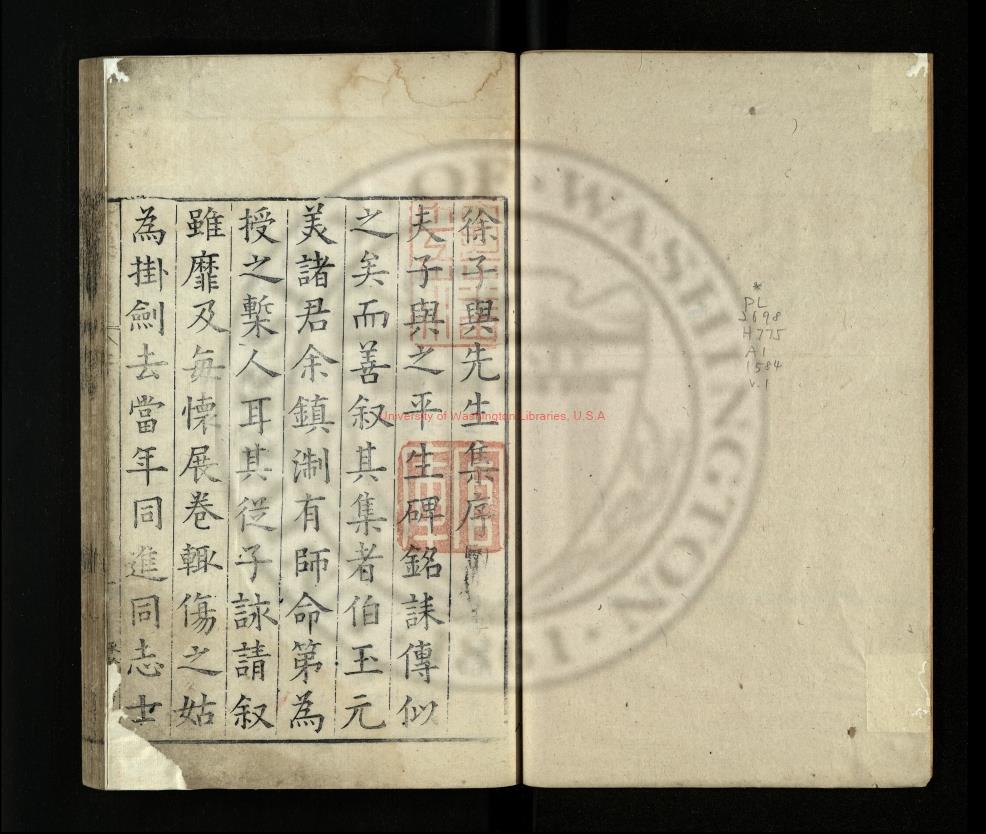 徐子與先生集序
夫子與之平生碑銘誄傳似
之矣而善叙其集者伯玉元
美諸君余鎮淛有師命第為
授之槧人耳其從子詠請叙
雖靡及每懷展卷輒傷之姑
為掛劍去當年同進同志士
*
PL
2698
H775
A1
1584
v.1
University of Washington Libraries, U.S.A
OF·WASHINGTON·1·